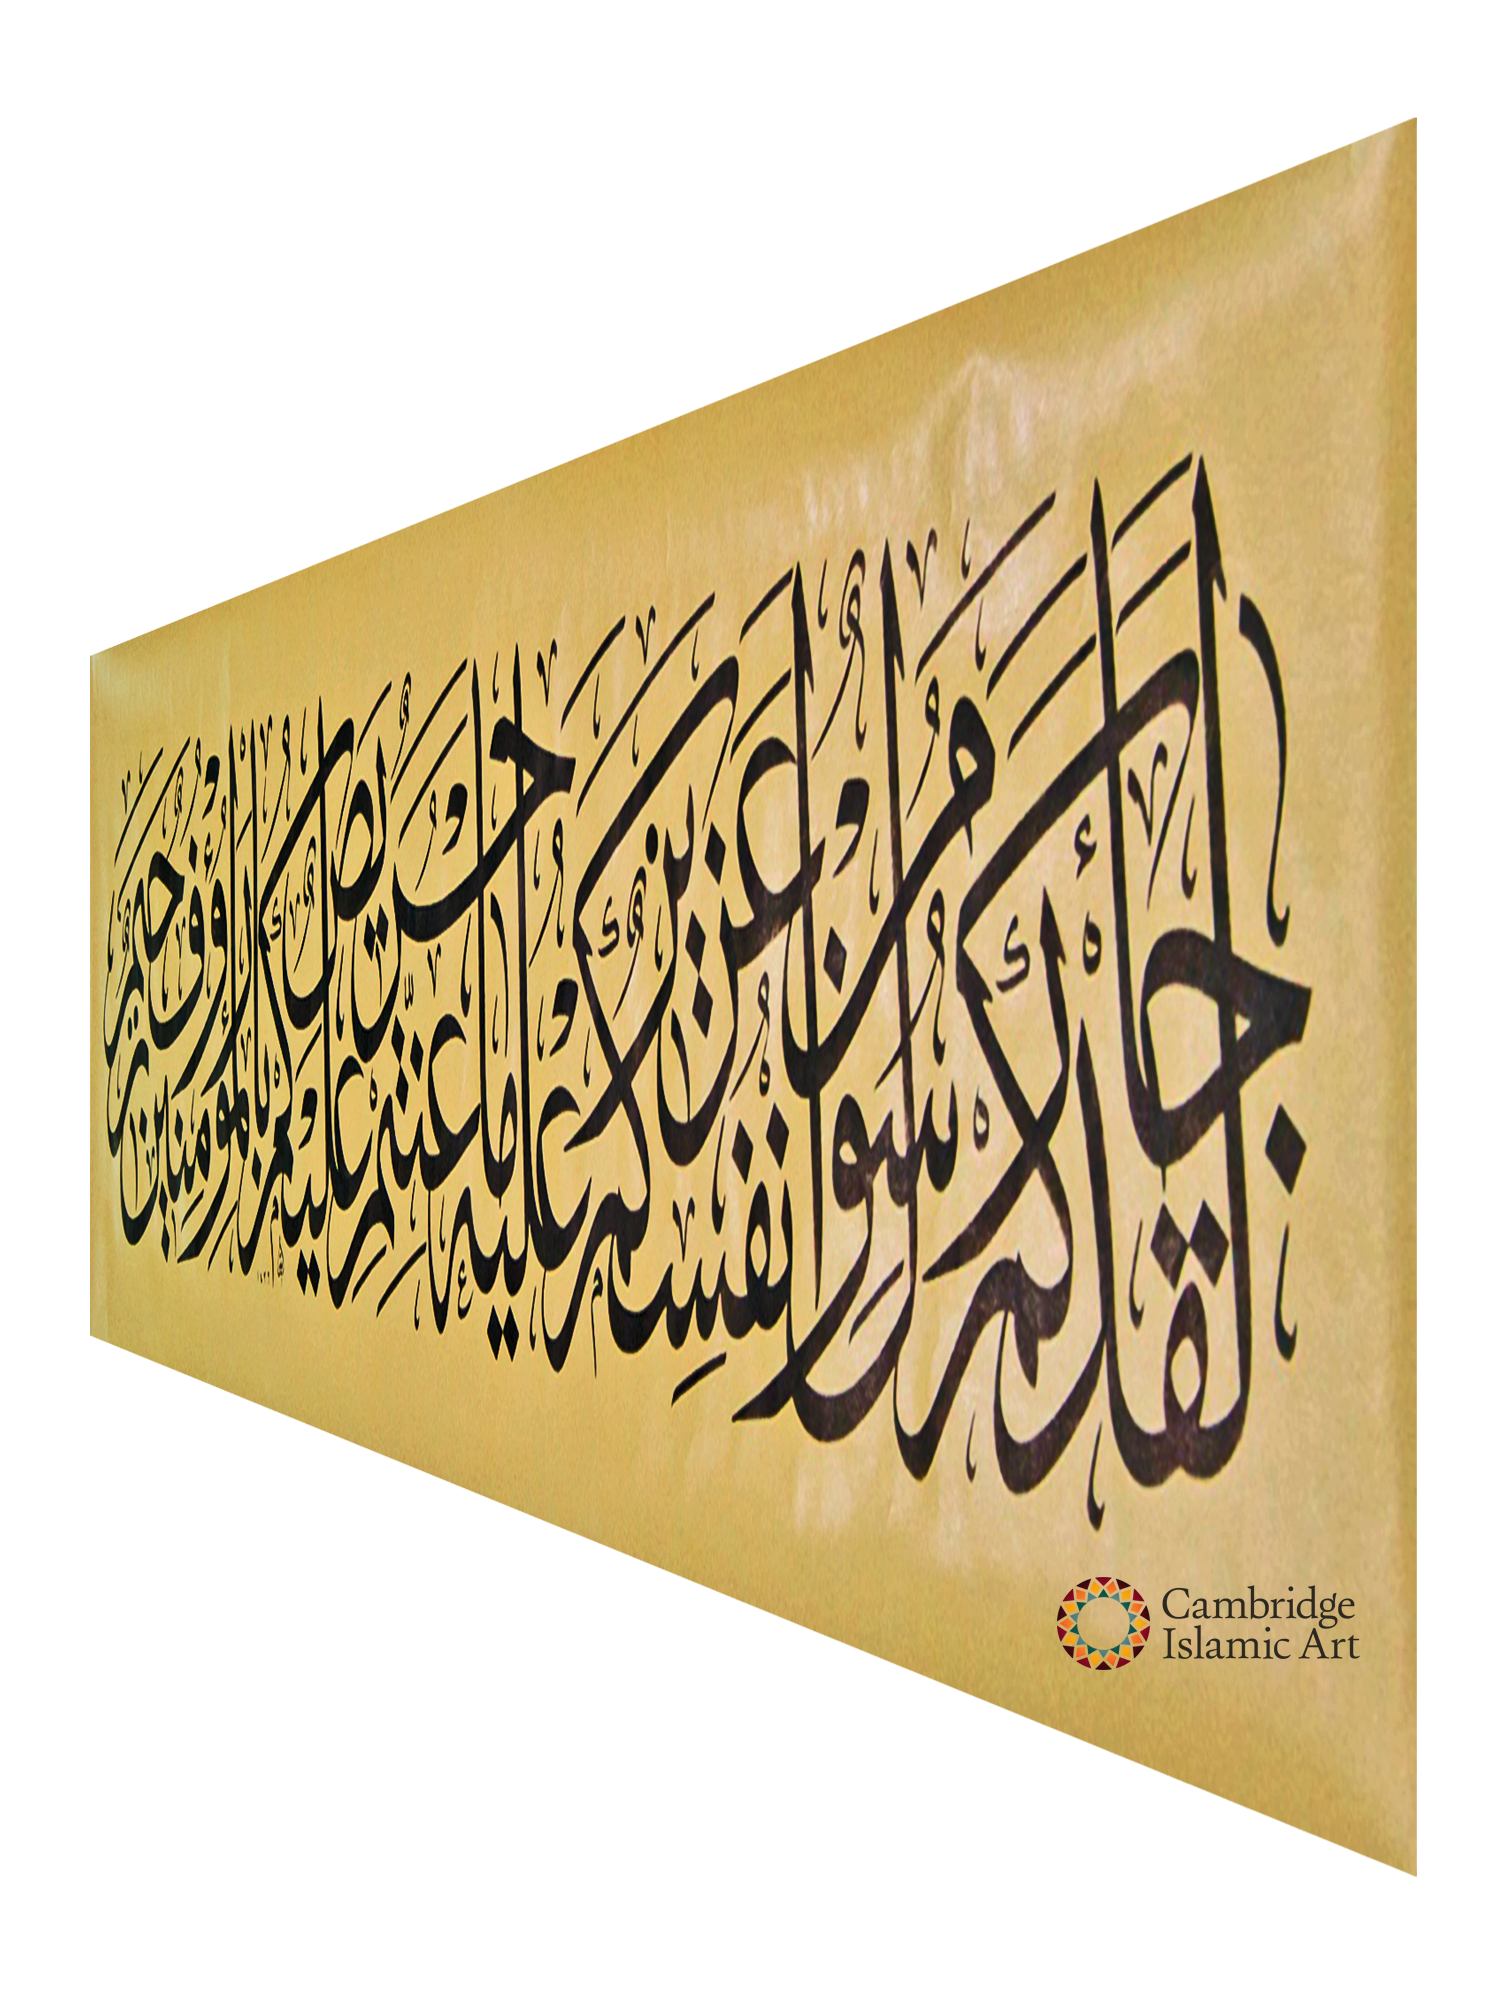 لَقَدْ جَاءَكُمْ رَسُولٌ مِنْ أَنْفُسِكُمْ عَزِيزٌ عَلَيْهِ مَا عَنِتُّمْ حَرِيصٌ عَلَيْكُمْ بِالْمُؤْمِنِينَ رَءُوفٌ رَحِيمٌ
Cambridge
Islamic Art